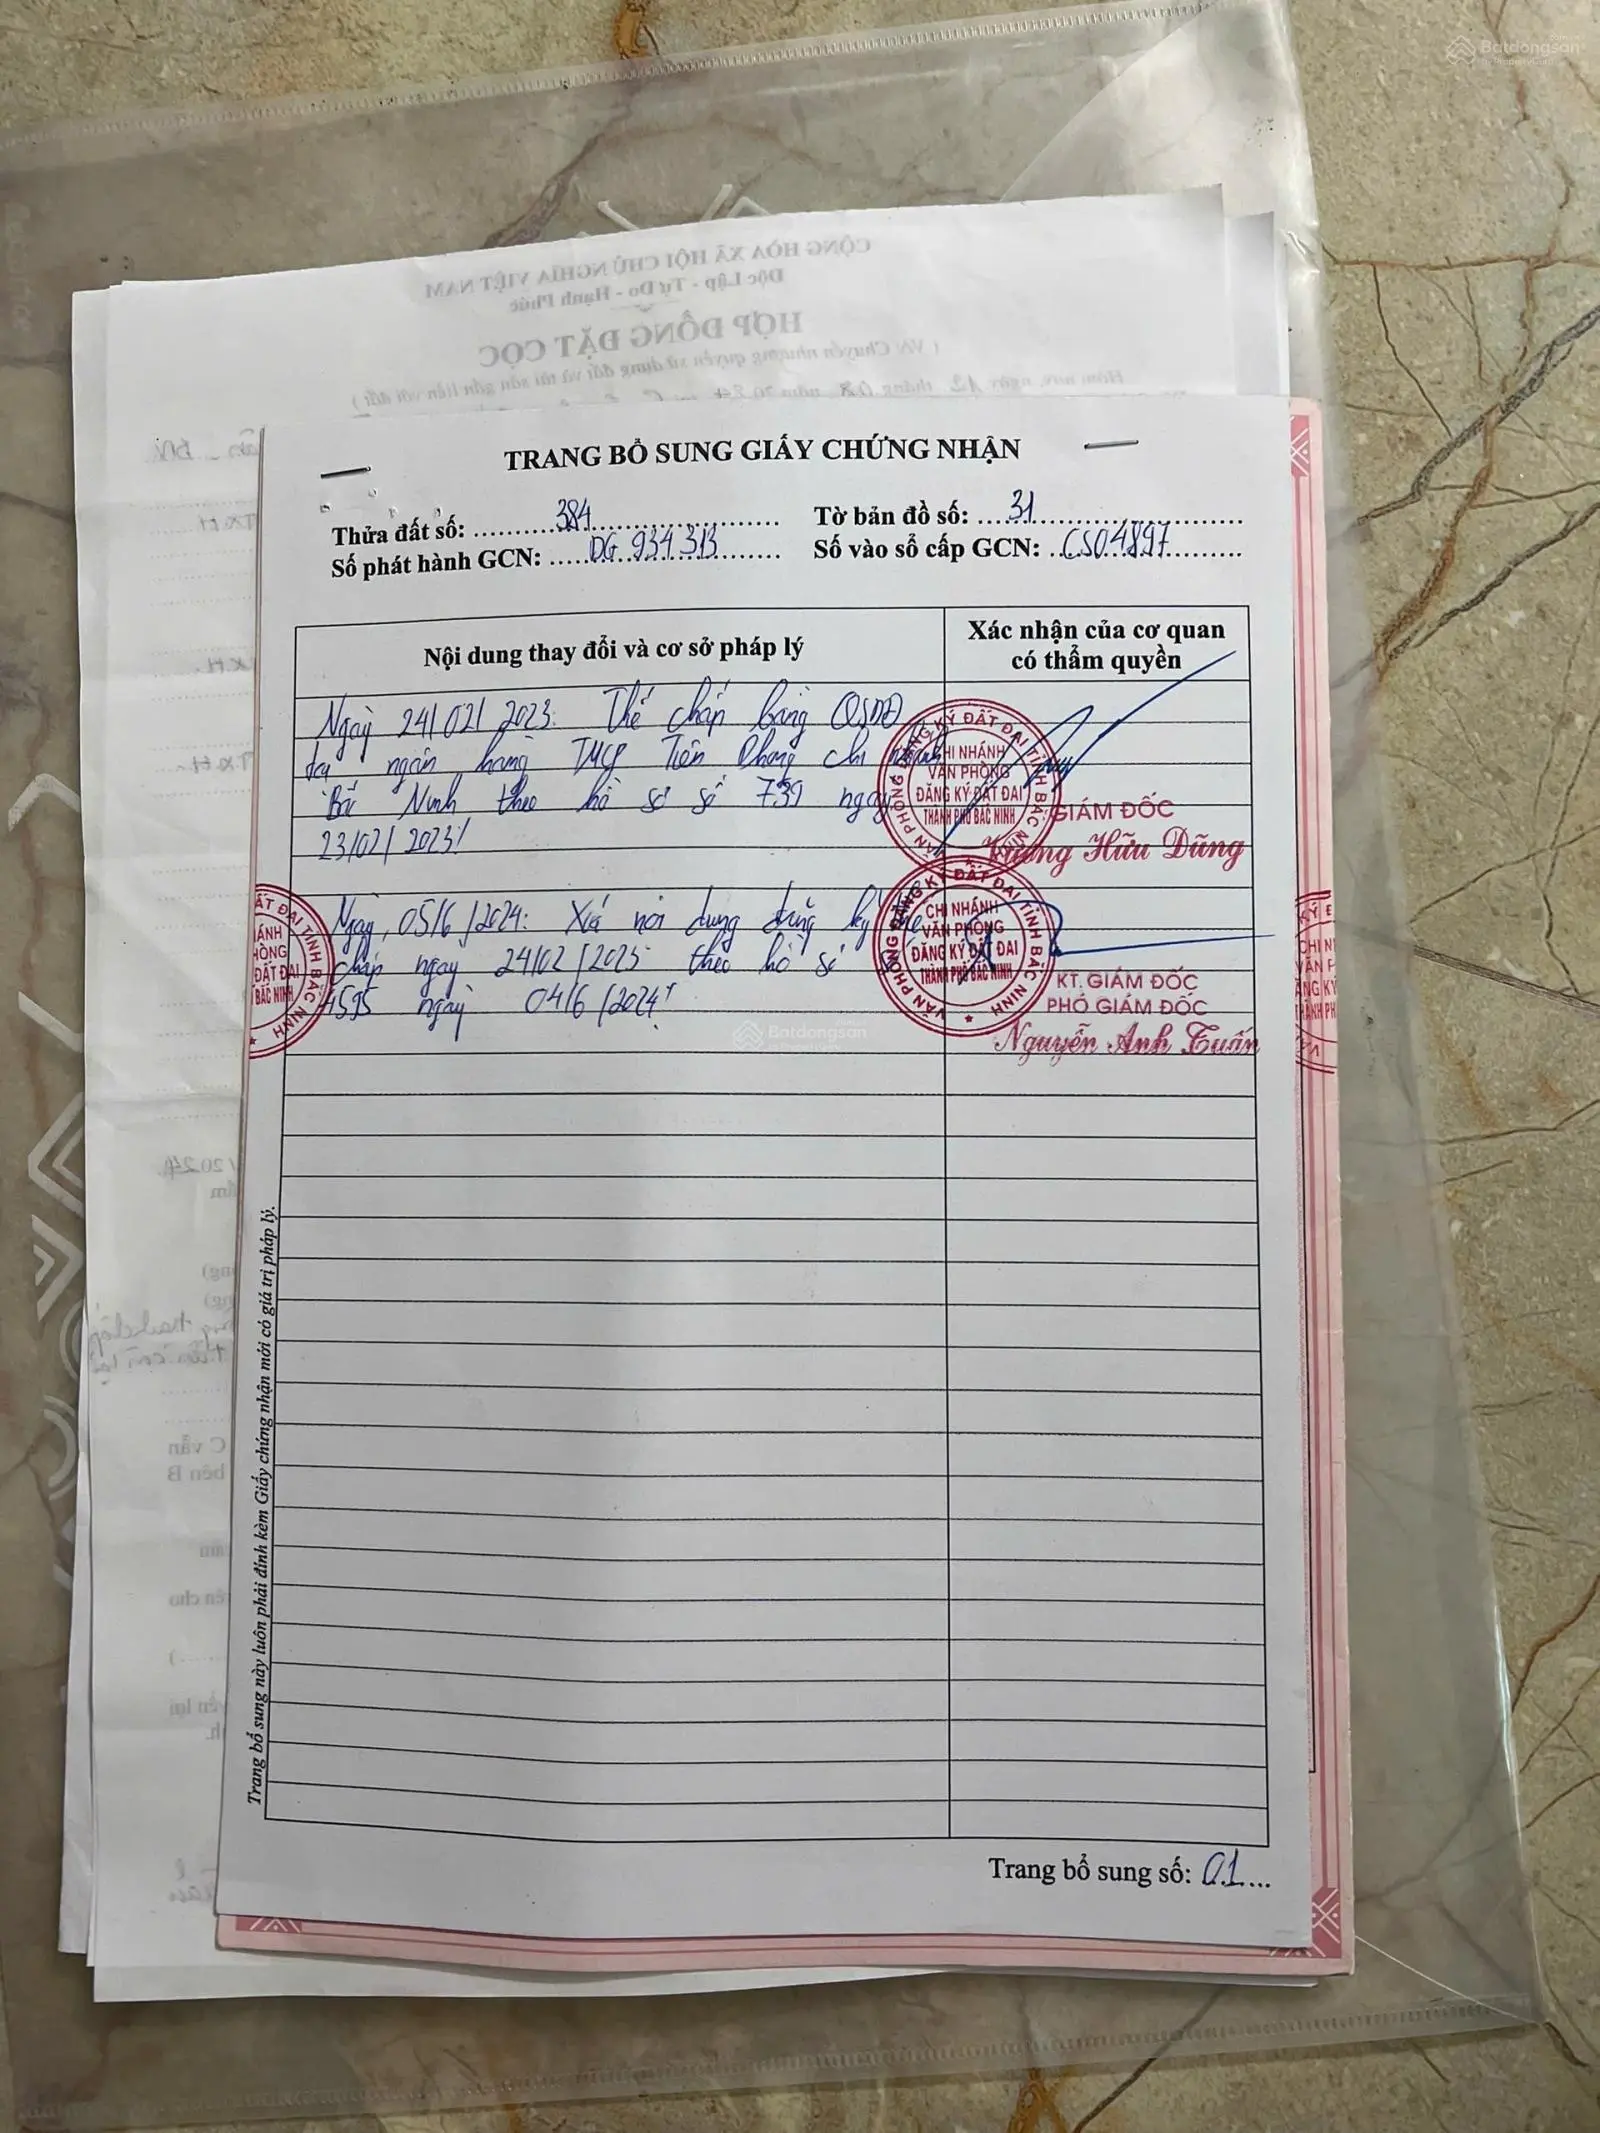 Batdongsan
by PropertyGuru
CỘNG HÒA XÃ HỘI CHỦ NGHĨA VIỆT NAM
Độc Lập - Tự Do - Hạnh Phúc
HỢP ĐỒNG ĐẶT CỌC
( V/v Chuyển nhượng quyền sử dụng đất và tài sản gắn liền với đất )
TRANG BỔ SUNG GIẤY CHỨNG NHẬN
Thửa đất số: 384 Tờ bản đồ số: 31
Số phát hành GCN: DG 934313 Số vào sổ cấp GCN: CS04897
Nội dung thay đổi và cơ sở pháp lý
Xác nhận của cơ quan
có thẩm quyền
Ngày 24/02/2023: Thế chấp bằng QSDĐ
tại ngân hàng TMCP Tiên Phong chi nhánh
Bắc Ninh theo hồ sơ số 739 ngày
23/02/2023!
VĂN PHÒNG ĐĂNG KÝ ĐẤT ĐAI TỈNH BẮC NINH
CHI NHÁNH
VĂN PHÒNG
ĐĂNG KÝ ĐẤT ĐAI
THÀNH PHỐ BẮC NINH
GIÁM ĐỐC
Hữu Dũng
Ngày, 05/6/2024: Xoá nội dung đăng ký thế
chấp ngày 24/02/2023 theo hồ sơ số
4595 ngày 04/6/2024!
VĂN PHÒNG ĐĂNG KÝ ĐẤT ĐAI TỈNH BẮC NINH
CHI NHÁNH
VĂN PHÒNG
ĐĂNG KÝ ĐẤT ĐAI
THÀNH PHỐ BẮC NINH
KT. GIÁM ĐỐC
PHÓ GIÁM ĐỐC
Nguyễn Anh Tuấn
Batdongsan
by PropertyGuru
Trang bổ sung này luôn phải đính kèm Giấy chứng nhận mới có giá trị pháp lý.
Trang bổ sung số: 01